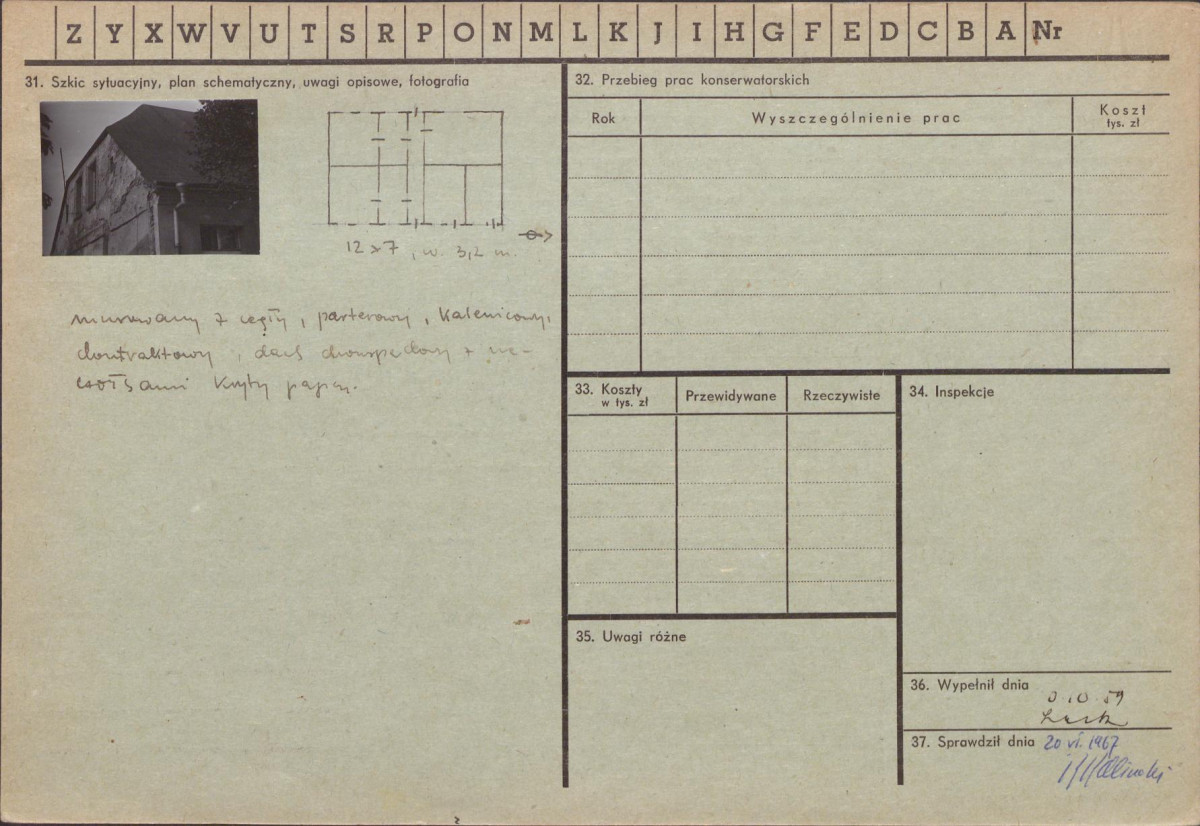 Z Y X W V U T S R P O N M L K J I H G F E D C B A Nr
31. Szkic sytuacyjny, plan schematyczny, uwagi opisowe, fotografia
12 x 7, w. 3,2 m.
murowany z cegły, parterowy, kalenicowy,
dach dwuspadowy z na-
czółkami kryty papą.
32. Przebieg prac konserwatorskich
Rok
Wyszczególnienie prac
Koszt
tys. zł
33. Koszty
w tys. zł
Przewidywane
Rzeczywiste
34. Inspekcje
35. Uwagi różne
36. Wypełnił dnia
10 59
37. Sprawdził dnia 20 VI. 1967